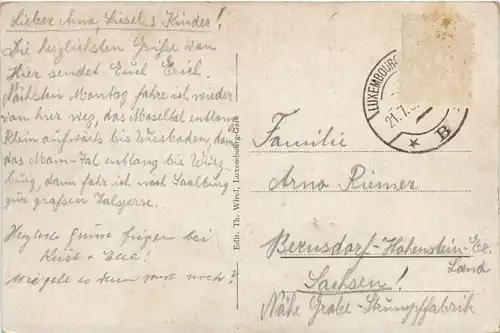 Lieber Arno, Liesel, & Kinder!
Die herzlichsten Grüße von
Hier sendet Euch Erich.
Nächsten Montag fahre ich wieder
von hier weg, das Moseltal entlang
Rhein aufwärts bis Wiesbaden, dann
das Main-Tal entlang bis Würz-
burg, dann fahr ich nach Saalburg
zur großen Talsperre.
Herzlich
bei
wie geht es denn sonst noch?
Edit. Th. Wirol, Luxembourg-Gare
LUXEMBOURG
21.7.3
B
Familie
Arno Riemer
Bernsdorf-Hohenstein-Er.
Land
Sachsen!
Nähe Grabe-Strumpffabrik